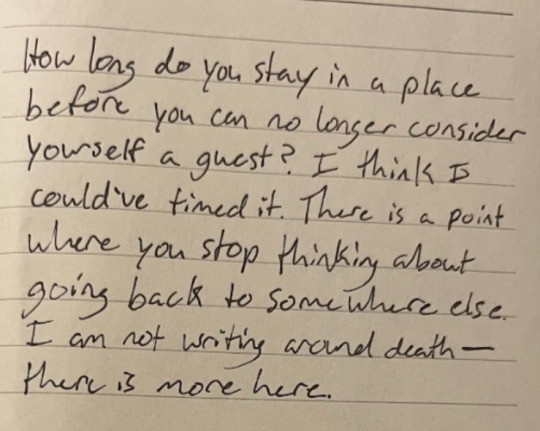 How long do you stay in a place
before you can no longer consider
yourself a guest? I think I
could've timed it. There is a point
where you stop thinking about
going back to somewhere else.
I am not writing around death—
there is more here.